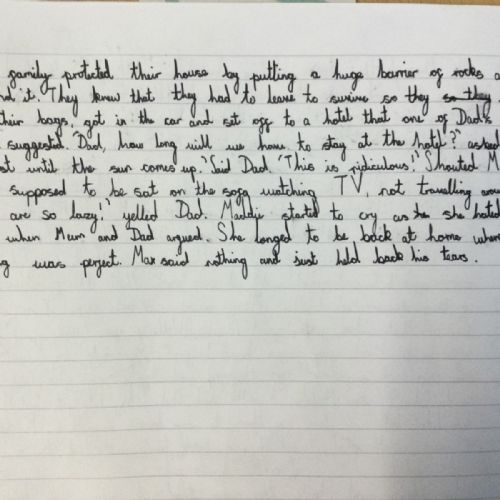 family protected their house by putting a huge barrier of rocks a
nd it. They knew that they had to leave to survive so they so they
their bags, got in the car and set off to a hotel that one of Dad's
suggested. "Dad, how long will we have to stay at the hotel?" asked
st until the sun comes up." Said Dad "This is ridiculous!" Shouted M
supposed to be sat on the sofa watching TV, not travelling aro
are so lazy!" yelled Dad. Maddie started to cry as she she hated
when Mum and Dad argued. She longed to be back at home where
g was perfect. Max said nothing and just held back his tears.